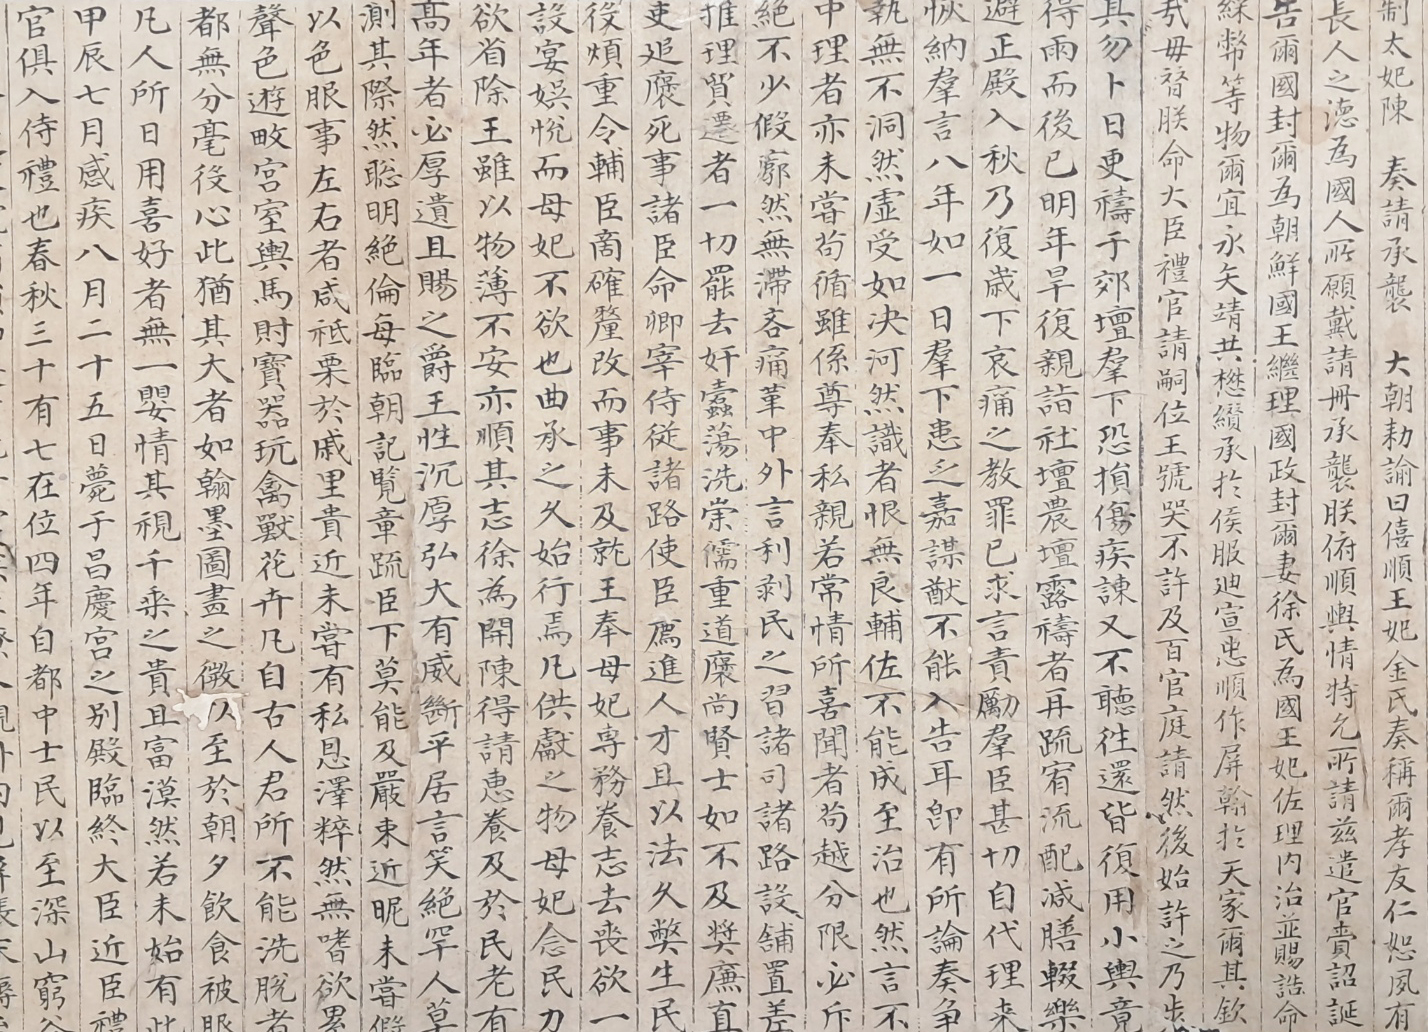 制太妃陳　奏請承襲　大朝勑諭曰僖順王妃金氏奏稱爾孝友仁恕夙有
長人之德為國人所願戴請冊承襲朕俯順輿情特允所請玆遣官賫詔誕
告爾國封爾為朝鮮國王繼理國政封爾妻徐氏為國王妃佐理內治並賜誥命
綵幣等物爾宜永矢靖共懋纘承於侯服迪宣忠順作屏翰於天家爾其欽
哉毋替朕命大臣禮官請嗣位王號哭不許及百官庭請然後始許之乃步
其勿卜日更禱于郊壇羣下恐損傷疾諫又不聽往還皆復用小輿竟
得雨而後已明年旱復親詣社壇農壇露禱者再疏宥流配減膳輟樂
避正殿入秋乃復歲下哀痛之教罪己求言責勵羣臣甚切自代理来
恢納羣言八年如一日羣下患之嘉謀猷不能入告耳卽有所論奏争
執無不洞然虛受如决河然識者恨無良輔佐不能成至治也然言不
中理者亦未嘗苟循雖係尊奉私親若常情所喜聞者苟越分限必斥
絕不少假廓然無滯吝痛革中外言利剥民之習諸司諸路設舖置差
推理貿遷者一切罷去奸蠹蕩洗崇儒重道褒尚賢士如不及奬廉直
吏追褒死事諸臣命卿宰侍從諸路使臣薦進人才且以法久獘生民
役煩重令輔臣啇確釐改而事未及就王奉母妃專務養志去喪欲一
設宴娛悅而母妃不欲也曲承之久始行焉凡供獻之物母妃念民力
欲省除王雖以物薄不安亦順其志徐為開陳得請惠養及於民老有
高年者必厚遺且賜之爵王性沉厚弘大有威斷平居言笑絕罕人莫
測其際然聡明絕倫每臨朝記覽章疏臣下莫能及嚴束近昵未嘗假
以色服事左右者咸祗栗於戚里貴近未嘗有私恩澤粹然無嗜欲累
聲色遊畋宮室輿馬財寶器玩禽獸花卉凡自古人君所不能洗脫者
都無分毫役心此猶其大者如翰墨圖畫之微以至於朝夕飲食被服
凡人所日用喜好者無一嬰情其視千乘之貴且富漠然若未始有此
甲辰七月感疾八月二十五日薨于昌慶宮之別殿臨終大臣近臣禮
官俱入侍禮也春秋三十有七在位四年自都中士民以至深山窮谷